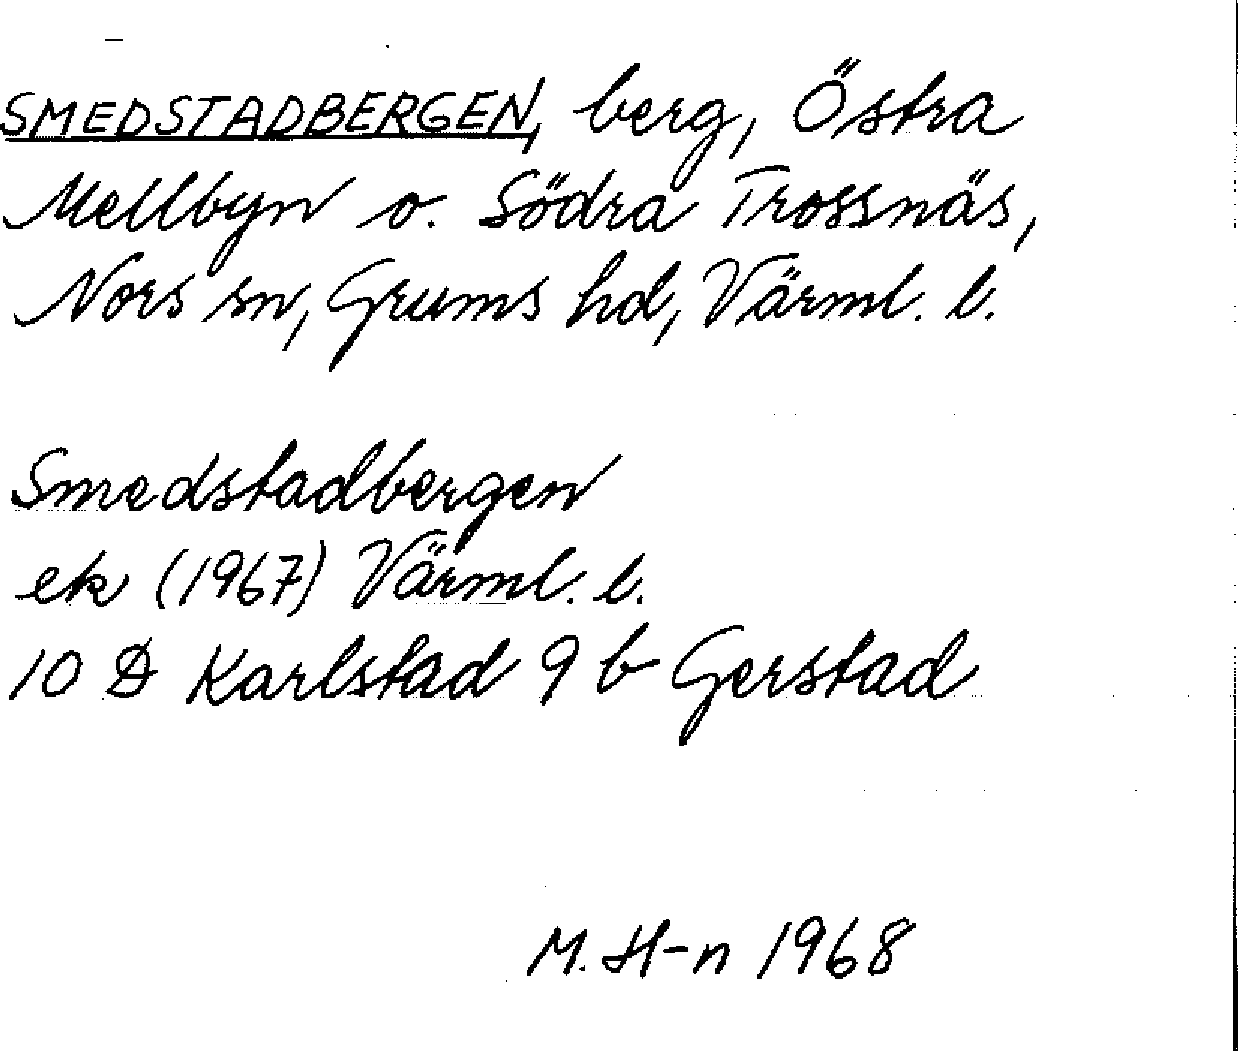 SMEDSTADBERGEN, berg, Östra
Mellbyn o. Södra Trossnäs,
Nors sn, Grums hd, Värml. l.
Smedstadbergen
ek (1967) Värml. l.
10 D Karlstad 9 b Gerstad
M. H-n 1968